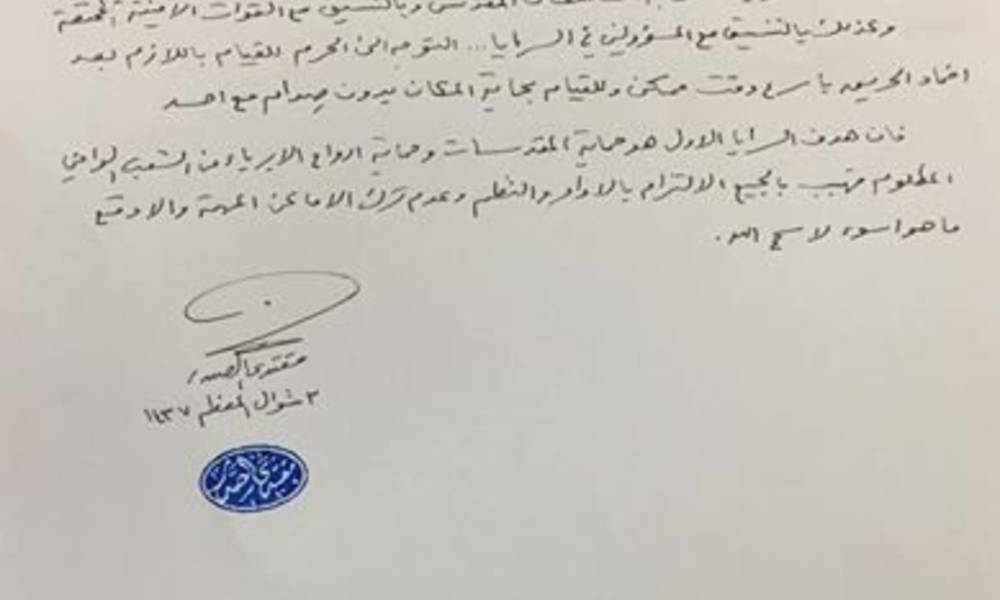 المقدس وبالتنسيق مع القوات الامنية المحقة
وكذلك بالتنسيق مع المسؤولين في السرايا... التوجه الى الحرم للقيام باللازم بعد
اخماد الحريق باسرع وقت ممكن وللقيام بحماية المكان بدون صدام مع احد
فان هدف السرايا الاول هو حماية المقدسات وحماية ارواح الابرياء من الشعب العراقي
المظلوم فهيب بالجميع الالتزام بالاوامر والنظم وعدم ترك الاماكن المهمة والا وقع
ما هو اسوء لا سمح الله.
مقتدى الصدر
٣ شوال المعظم ١٤٣٧
مقتدى الصدر